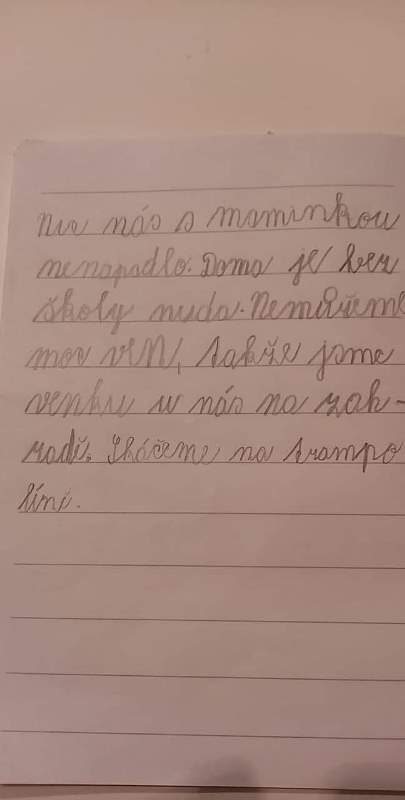 Nic nás s maminkou
nenapadlo. Doma je bez
školy nuda. Nemůžeme
moc ven, takže jsme
venku u nás na zah-
radě. Skáčeme na trampo
líně.